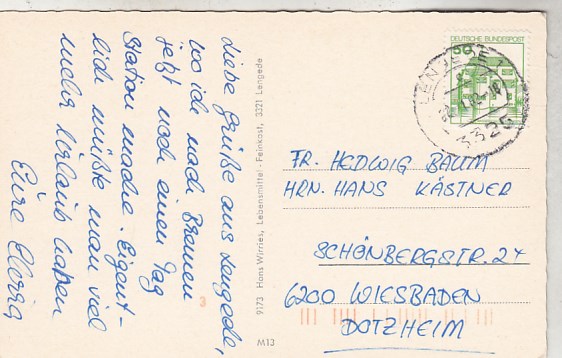 diebe Grüße aus Lengede,
wo ich nach Bremen
jetzt noch einen Tag
Station mache. Eigent-
lich müßte man viel
mehr Urlaub haben
Eure
9173 Hans Wirries, Lebensmittel - Feinkost, 3321 Lengede
M13
3
DEUTSCHE BUNDESPOST
50
LENGEDE
3325
FR. HEDWIG BAUM
HRN. HANS KÄSTNER
SCHÖNBERGSTR. 24
6200 WIESBADEN
DOTZHEIM